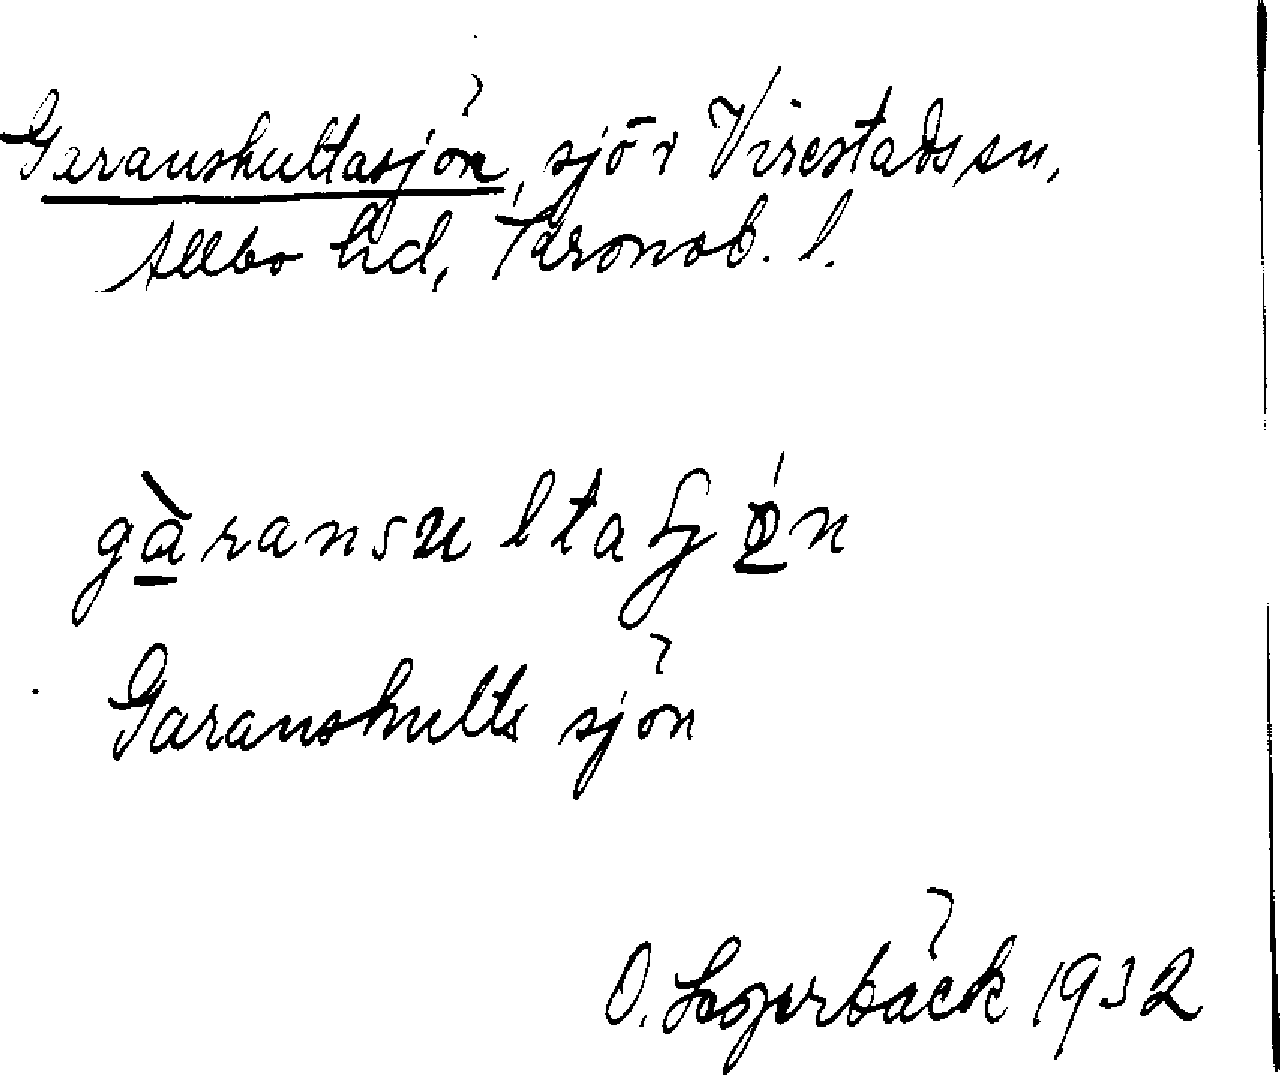 Garanshultasjön, sjö i Virestads sn,
Allbo hd, Kronob. l.
gàransultaſjön
Garanshulta sjön
O. Lagerbäck 1932